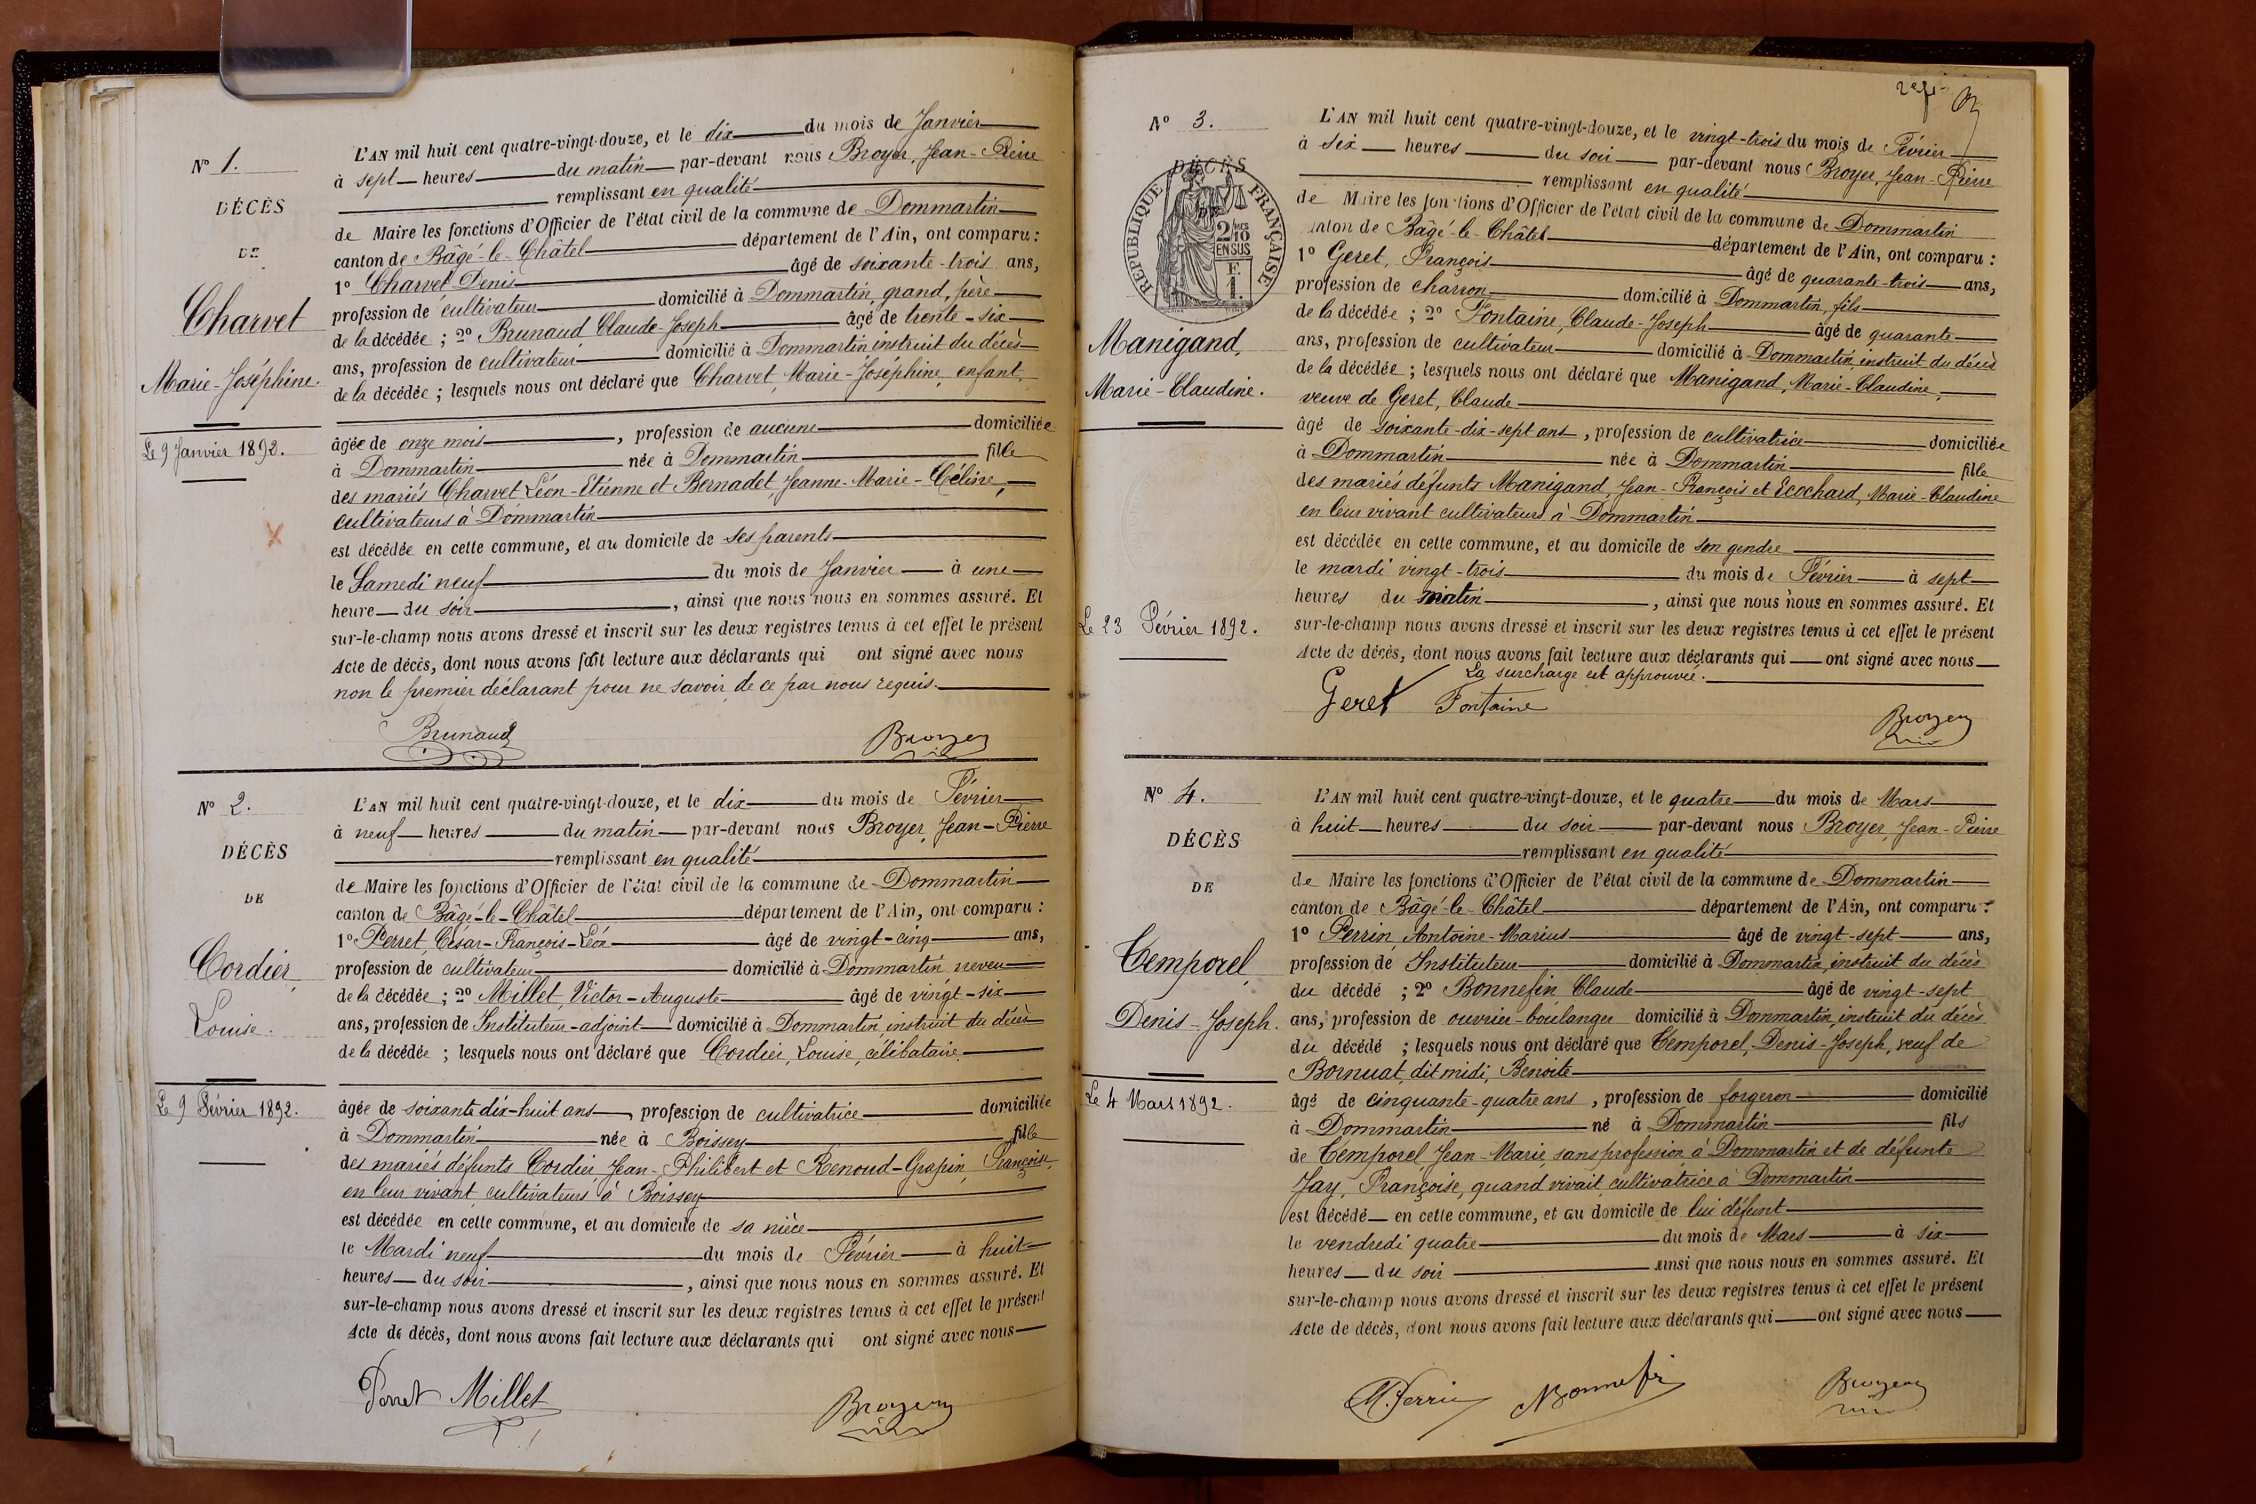 N° 1.
DÉCÈS
DE
Charvet
Marie-Joséphine.
Le 9 Janvier 1892.
L'AN mil huit cent quatre-vingt-douze, et le dix du mois de Janvier
à sept heures du matin par-devant nous Broyer, Jean-Pierre
remplissant en qualité
de Maire les fonctions d'Officier de l'état civil de la commune de Dommartin
canton de Bâgé-le-Châtel département de l'Ain, ont comparu :
1° Charvet Denis âgé de soixante-trois ans,
profession de cultivateur domicilié à Dommartin, grand, père
de la décédée ; 2° Brunaud Claude-Joseph âgé de trente-six
ans, profession de cultivateur domicilié à Dommartin instruit du décès
de la décédée ; lesquels nous ont déclaré que Charvet, Marie-Joséphine, enfant,
âgée de onze mois, profession de aucune domiciliée
à Dommartin née à Dommartin fille
des mariés Charvet Léon-Etienne et Bernadet, Jeanne-Marie-Céline,
cultivateurs à Dommartin
est décédée en cette commune, et au domicile de ses parents
le Samedi neuf du mois de Janvier à une
heure du soir, ainsi que nous nous en sommes assuré. Et
sur-le-champ nous avons dressé et inscrit sur les deux registres tenus à cet effet le présent
Acte de décès, dont nous avons fait lecture aux déclarants qui ont signé avec nous
non le premier déclarant pour ne savoir, de ce par nous requis.
Brunaud Broyer
N° 2.
DÉCÈS
DE
Cordier,
Louise.
Le 9 Février 1892.
L'AN mil huit cent quatre-vingt-douze, et le dix du mois de Février
à neuf heures du matin par-devant nous Broyer, Jean-Pierre
remplissant en qualité
de Maire les fonctions d'Officier de l'état civil de la commune de Dommartin
canton de Bâgé-le-Châtel département de l'Ain, ont comparu :
1° Perret, César-François-Léon âgé de vingt-cinq ans,
profession de cultivateur domicilié à Dommartin neveu
de la décédée ; 2° Millet, Victor-Auguste âgé de vingt-six
ans, profession de Instituteur-adjoint domicilié à Dommartin, instruit du décès
de la décédée ; lesquels nous ont déclaré que Cordier, Louise, célibataire,
âgée de soixante dix-huit ans, profession de cultivatrice domiciliée
à Dommartin née à Boissey fille
des mariés défunts Cordier, Jean-Philibert et Renoud-Grapin, Françoise,
en leur vivant cultivateurs à Boissey
est décédée en cette commune, et au domicile de sa nièce
le Mardi neuf du mois de Février à huit
heures du soir, ainsi que nous nous en sommes assuré. Et
sur-le-champ nous avons dressé et inscrit sur les deux registres tenus à cet effet le présent
Acte de décès, dont nous avons fait lecture aux déclarants qui ont signé avec nous
Perret Millet Broyer
2e f.
N° 3.
DÉCÈS
DE
RÉPUBLIQUE FRANÇAISE
2/10
EN SUS
1 F.
Manigand,
Marie-Claudine.
Le 23 Février 1892.
L'AN mil huit cent quatre-vingt-douze, et le vingt-trois du mois de Février
à six heures du soir par-devant nous Broyer, Jean-Pierre
remplissant en qualité
de Maire les fonctions d'Officier de l'état civil de la commune de Dommartin
canton de Bâgé-le-Châtel département de l'Ain, ont comparu :
1° Geret, François âgé de quarante-trois ans,
profession de charron domicilié à Dommartin, fils
de la décédée ; 2° Fontaine, Claude-Joseph âgé de quarante
ans, profession de cultivateur domicilié à Dommartin, instruit du décès
de la décédée ; lesquels nous ont déclaré que Manigand, Marie-Claudine,
veuve de Geret, Claude
âgé de soixante-dix-sept ans, profession de cultivatrice domiciliée
à Dommartin née à Dommartin fille
des mariés défunts Manigand, Jean-François et Ecochard, Marie-Claudine
en leur vivant cultivateurs à Dommartin
est décédée en cette commune, et au domicile de son gendre
le mardi vingt-trois du mois de Février à sept
heures du matin, ainsi que nous nous en sommes assuré. Et
sur-le-champ nous avons dressé et inscrit sur les deux registres tenus à cet effet le présent
Acte de décès, dont nous avons fait lecture aux déclarants qui ont signé avec nous
La surcharge est approuvée.
Geret Fontaine Broyer
N° 4.
DÉCÈS
DE
Temporel,
Denis-Joseph.
Le 4 Mars 1892.
L'AN mil huit cent quatre-vingt-douze, et le quatre du mois de Mars
à huit heures du soir par-devant nous Broyer, Jean-Pierre
remplissant en qualité
de Maire les fonctions d'Officier de l'état civil de la commune de Dommartin
canton de Bâgé-le-Châtel département de l'Ain, ont comparu :
1° Perrin, Antoine-Marius âgé de vingt-sept ans,
profession de Instituteur domicilié à Dommartin, instruit du décès
du décédé ; 2° Bonnefin Claude âgé de vingt-sept
ans, profession de ouvrier-boulanger domicilié à Dommartin, instruit du décès
du décédé ; lesquels nous ont déclaré que Temporel, Denis-Joseph, veuf de
Bornuat, dit midi, Benoite
âgé de cinquante-quatre ans, profession de forgeron domicilié
à Dommartin né à Dommartin fils
de Temporel, Jean-Marie, sans profession à Dommartin et de défunte
Jay, Françoise, quand vivait cultivatrice à Dommartin
est décédé en cette commune, et au domicile de lui défunt
le vendredi quatre du mois de Mars à six
heures du soir ainsi que nous nous en sommes assuré. Et
sur-le-champ nous avons dressé et inscrit sur les deux registres tenus à cet effet le présent
Acte de décès, dont nous avons fait lecture aux déclarants qui ont signé avec nous
M. Perrin Bonnefin Broyer